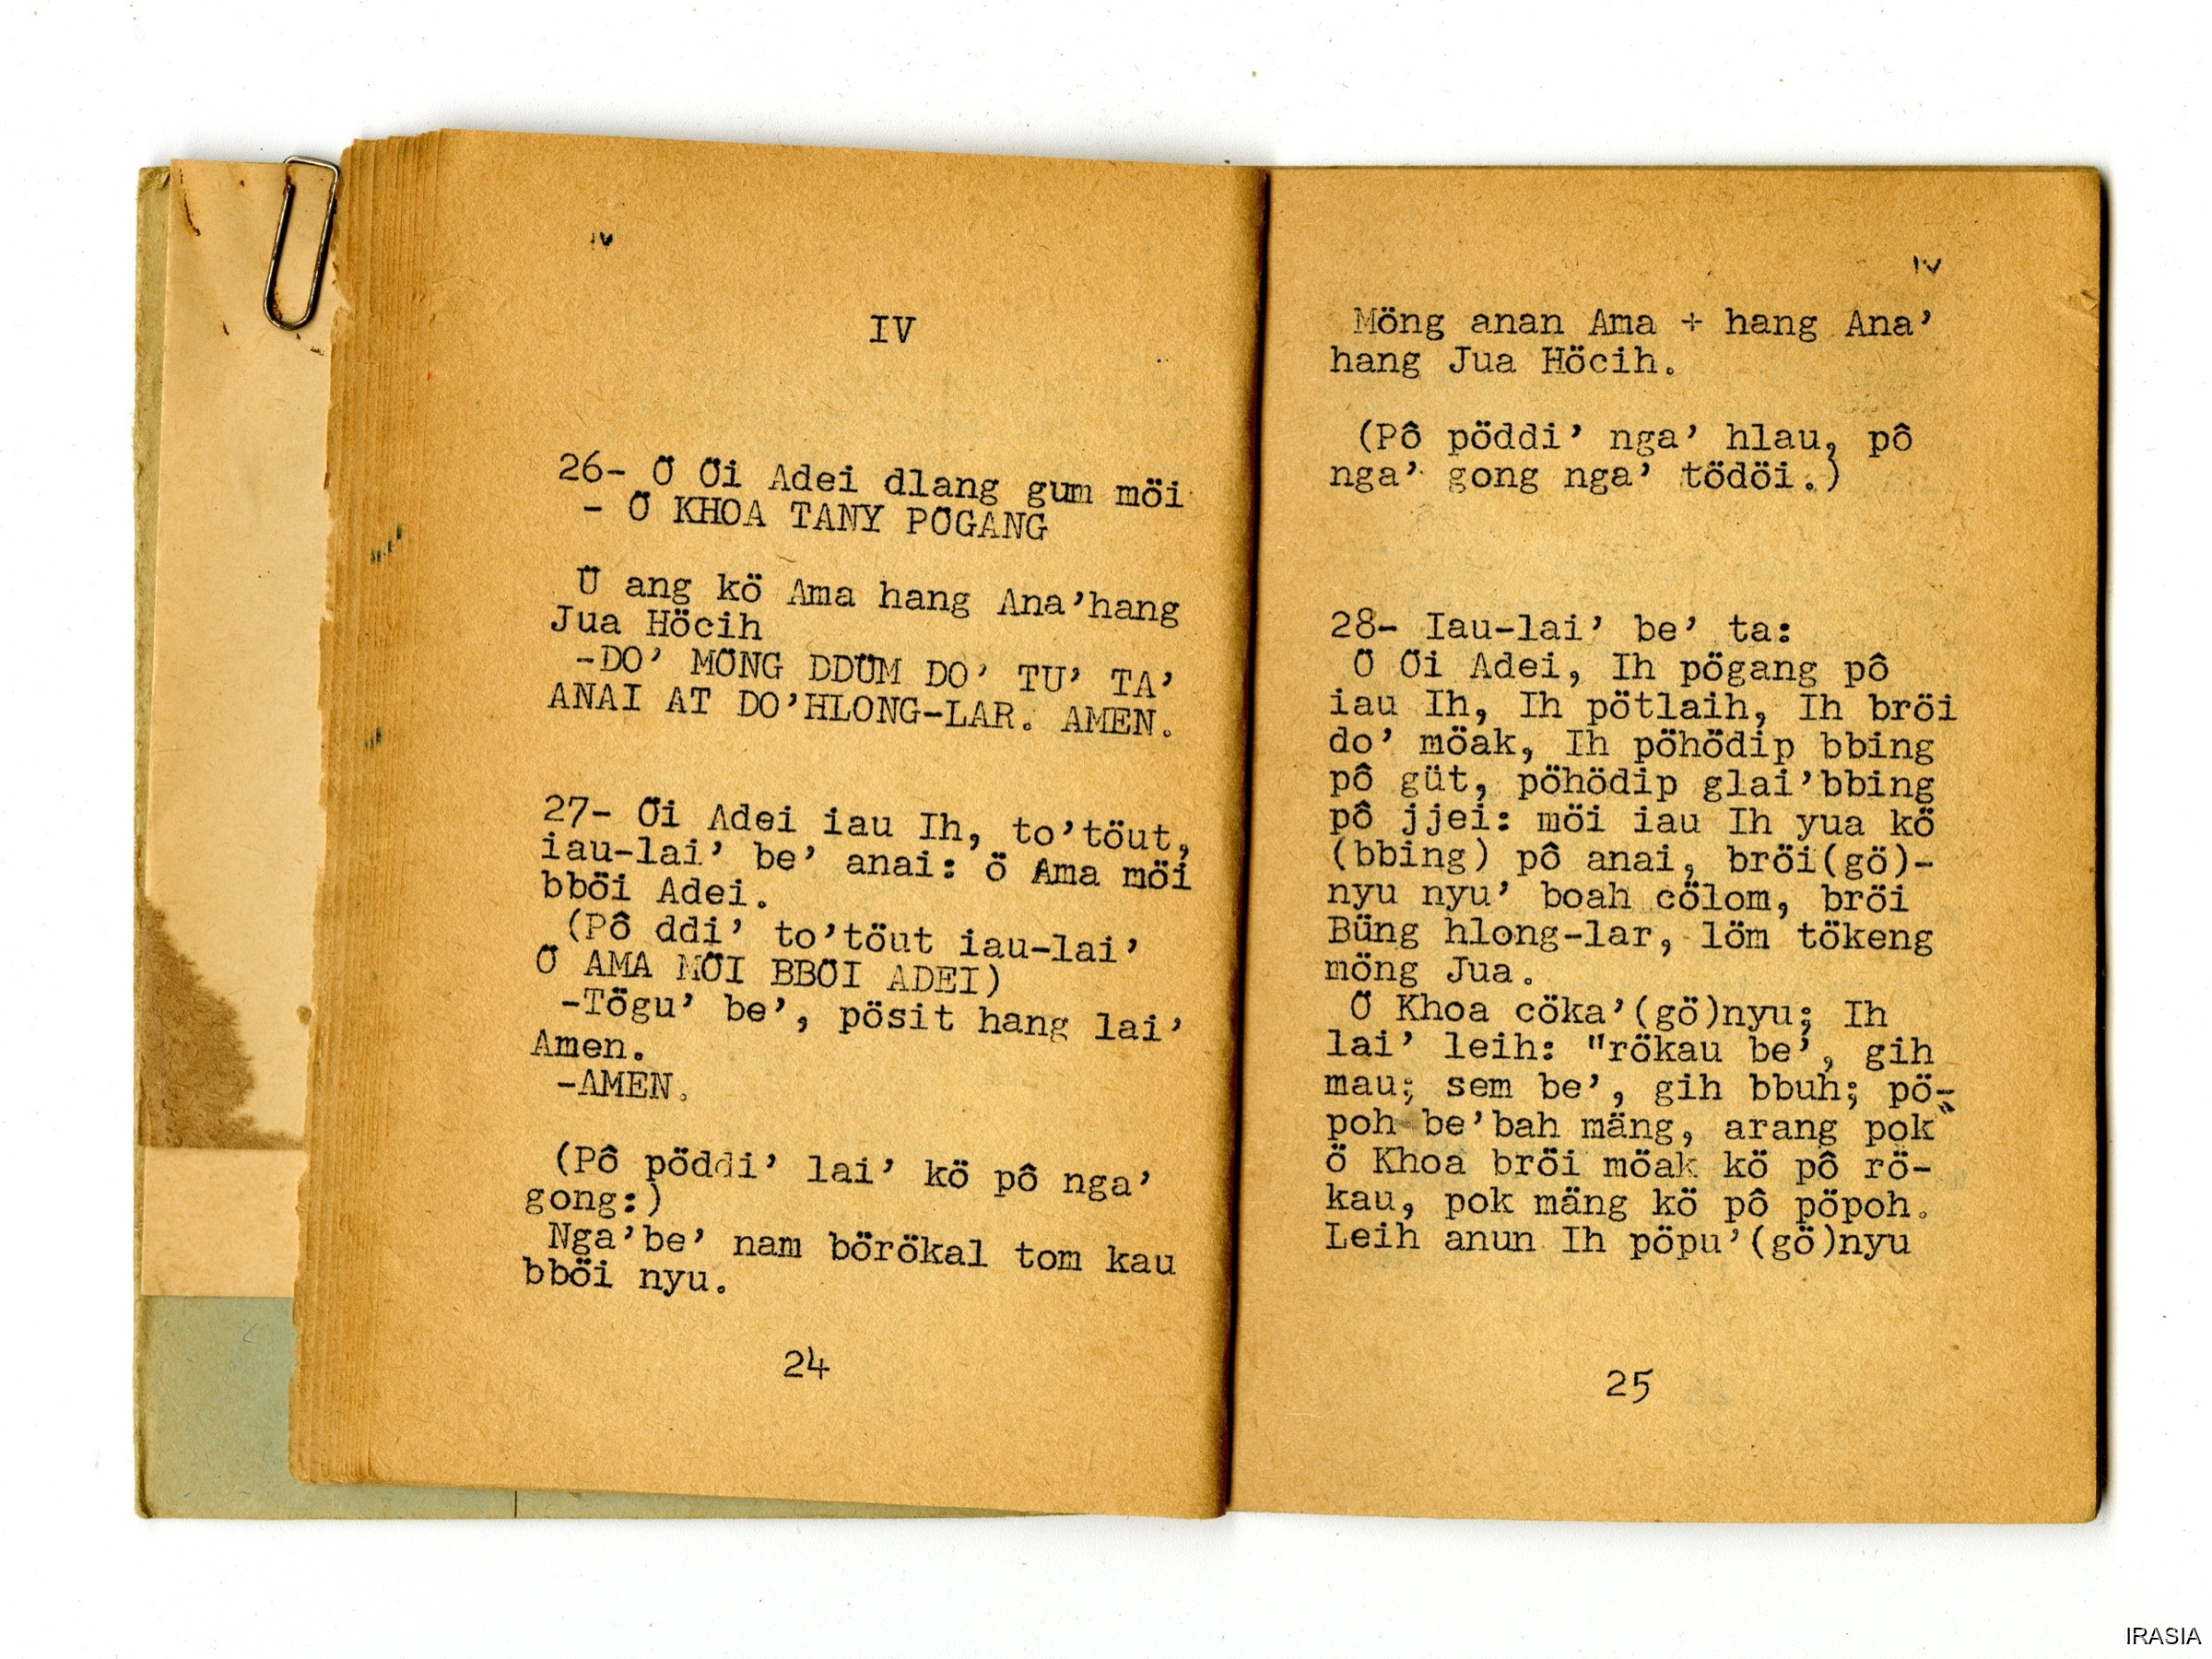 IV
IV
26- Ö Öi Adei dlang gum möi
- Ö KHOA TANY PÖGANG
Ü ang kö Ama hang Ana’hang
Jua Höcih
-DO’ MÖNG DDÜM DO’ TU’ TA’
ANAI AT DO’HLONG-LAR. AMEN.
27- Öi Adei iau Ih, to’töut,
iau-lai’ be’ anai: ö Ama möi
bböi Adei.
(Pô ddi’ to’töut iau-lai’
Ö AMA MÖI BBÖI ADEI)
-Tögu’ be’, pösit hang lai’
Amen.
-AMEN.
(Pô pöddi’ lai’ kö pô nga’
gong:)
Nga’be’ nam börökal tom kau
bböi nyu.
24
IV
Möng anan Ama ÷ hang Ana’
hang Jua Höcih.
(Pô pöddi’ nga’ hlau, pô
nga’ gong nga’ tödöi.)
28- Iau-lai’ be’ ta:
Ö Öi Adei, Ih pögang pô
iau Ih, Ih pötlaih, Ih bröi
do’ möak, Ih pöhödip bbing
pô güt, pöhödip glai’bbing
pô jjei: möi iau Ih yua kö
(bbing) pô anai, bröi(gö)-
nyu nyu’ boah cölom, bröi
Büng hlong-lar, löm tökeng
möng Jua.
Ö Khoa cöka’(gö)nyu; Ih
lai’ leih: "rökau be’, gih
mau; sem be’, gih bbuh; pö-
poh be’bah mäng, arang pok"
ö Khoa bröi möak kö pô rö-
kau, pok mäng kö pô pöpoh.
Leih anun Ih pöpu’(gö)nyu
25
IRASIA